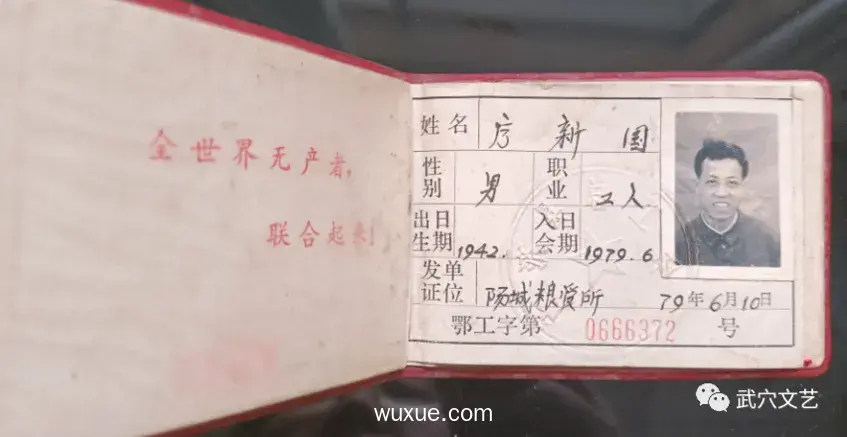 全世界无产者,
联合起来!
姓名 新国
性别 男 职业 工人
出生日期 1942. 入会日期 1979.6
发证单位 粮管所 79年6月10日
鄂工字第 0666372 号
武穴文艺
wuxue.com